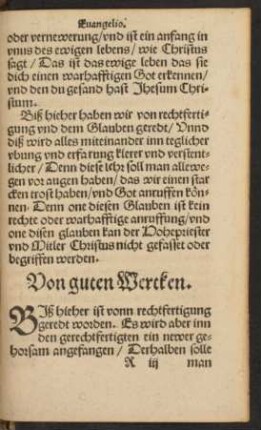 Euangelio.
oder vernewerung/vnd ist ein anfang in
vnns des ewigen lebens/wie Christus
sagt/Das ist das ewige leben das sie
dich einen warhafftigen Got erkennen/
vnd den du gesand hast Jhesum Chri-
stum.
Biß hieher haben wir von rechtferti-
gung vnd dem Glauben geredt/Vnnd
diß wird alles miteinander inn teglicher
vbung vnd erfarung klerer vnd verstent-
licher/Denn diese lehr soll man allewe-
gen vor augen haben/das wir einen star
cken trost haben/vnd Got anruffen kön-
nen. Denn one diesen Glauben ist kein
rechte oder warhafftige anruffung/vnd
one disen glauben kan der Hohepriester
vnd Mitler Christus nicht gefasset oder
begriffen werden.
Von guten Wercken.
Biß hieher ist vonn rechtfertigung
geredt worden. Es wird aber inn
den gerechtfertigten ein newer ge-
horsam angefangen/Derhalben solle
R iij man